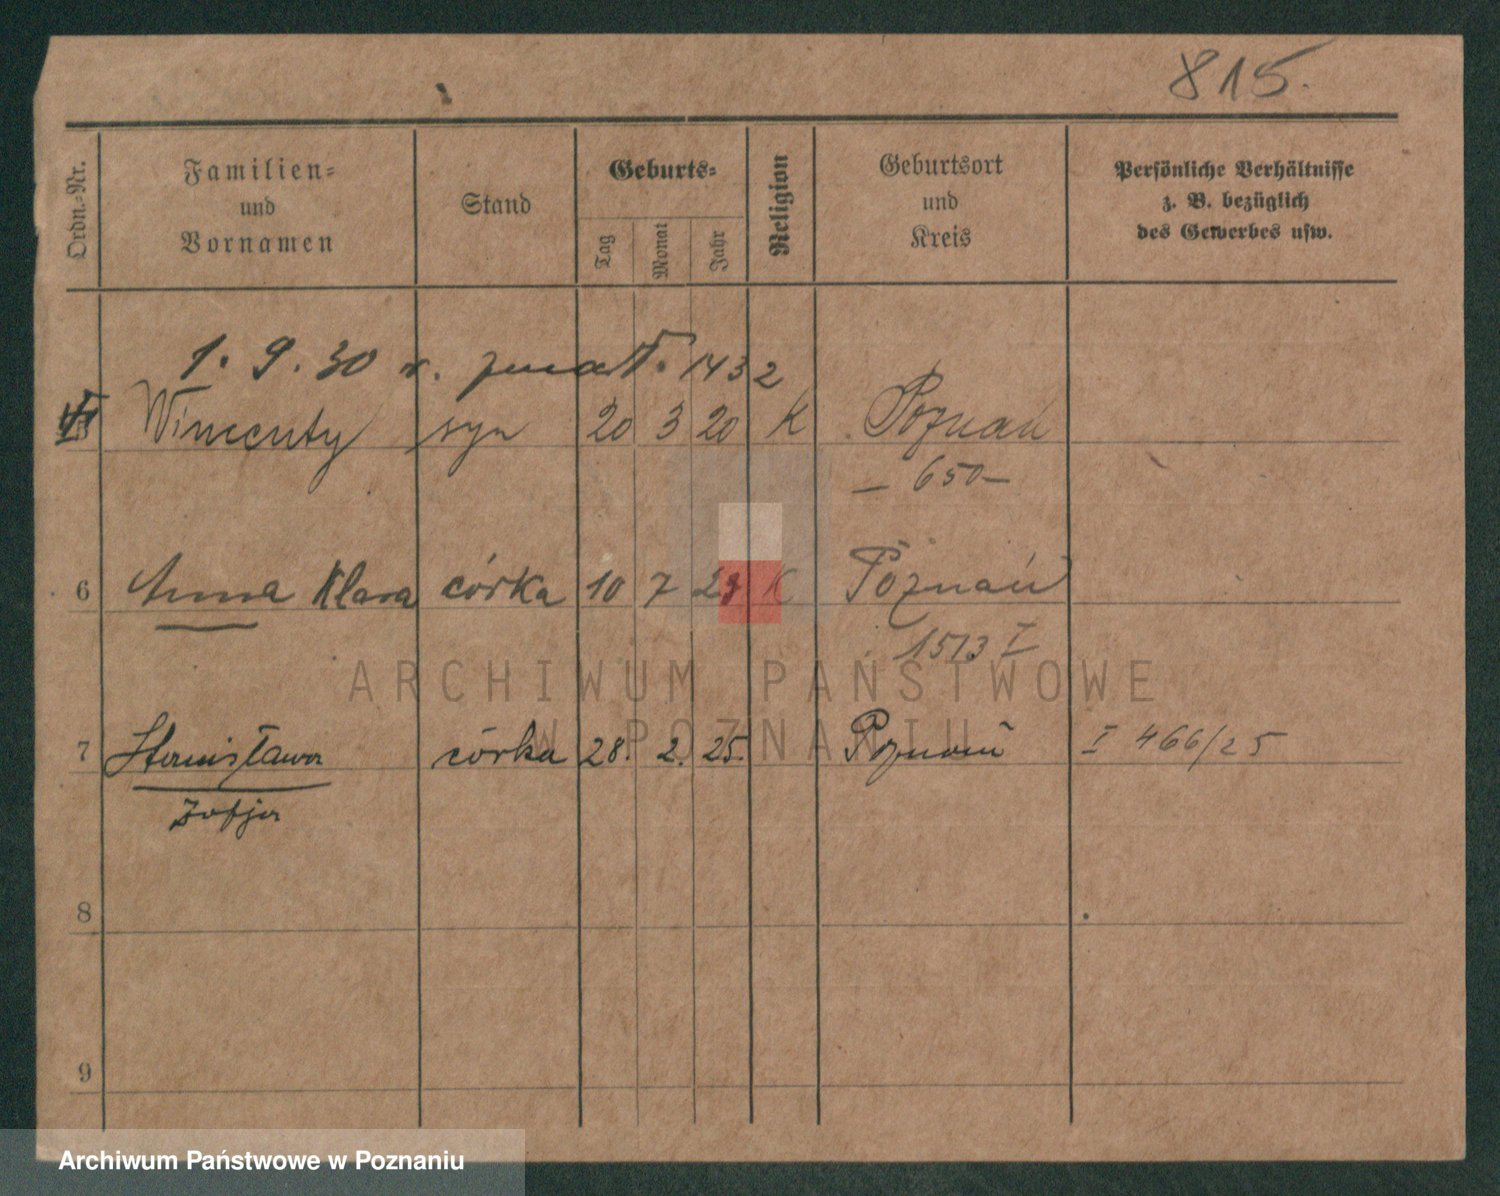 815.
Ordn.-Nr. Familien- und Vornamen Stand Geburts- Tag Monat Jahr Religion Geburtsort und Kreis Persönliche Verhältnisse z. B. bezüglich des Gewerbes usw.
1. 9. 30 r. zmarł. 1432
5 Wincenty syn 20 3 20 K Poznań
– 650 –
6 Anna Klara córka 10 7 23 K Poznań
1513 I
ARCHIWUM PAŃSTWOWE
W POZNANIU
7 Stanisława córka 28. 2. 25. Poznań I 466/25
Zofja
8
9
Archiwum Państwowe w Poznaniu